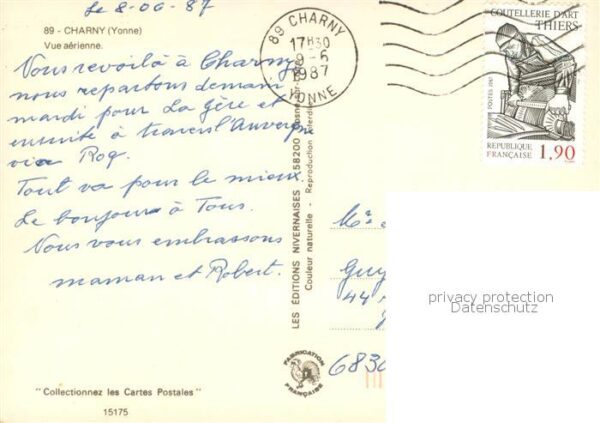 Le 8-06-87
89 - CHARNY (Yonne)
Vue aérienne.
Vous revoilà à Charny
nous repartons demain
mardi pour La Gère et
ensuite à travers l'Auvergne
via Roq.
Tout va pour le mieux.
Le bonjour à Tous.
Nous vous embrassons
maman et Robert.
"Collectionnez les Cartes Postales"
15175
LES ÉDITIONS NIVERNAISES 58200
Couleur naturelle - Reproduction interdite
FABRICATION
FRANÇAISE
89 CHARNY
17H30
9-6
1987
YONNE
COUTELLERIE D'ART
THIERS
POSTES 1987
REPUBLIQUE
FRANÇAISE
1,90
Guy
44
6830
privacy protection
Datenschutz